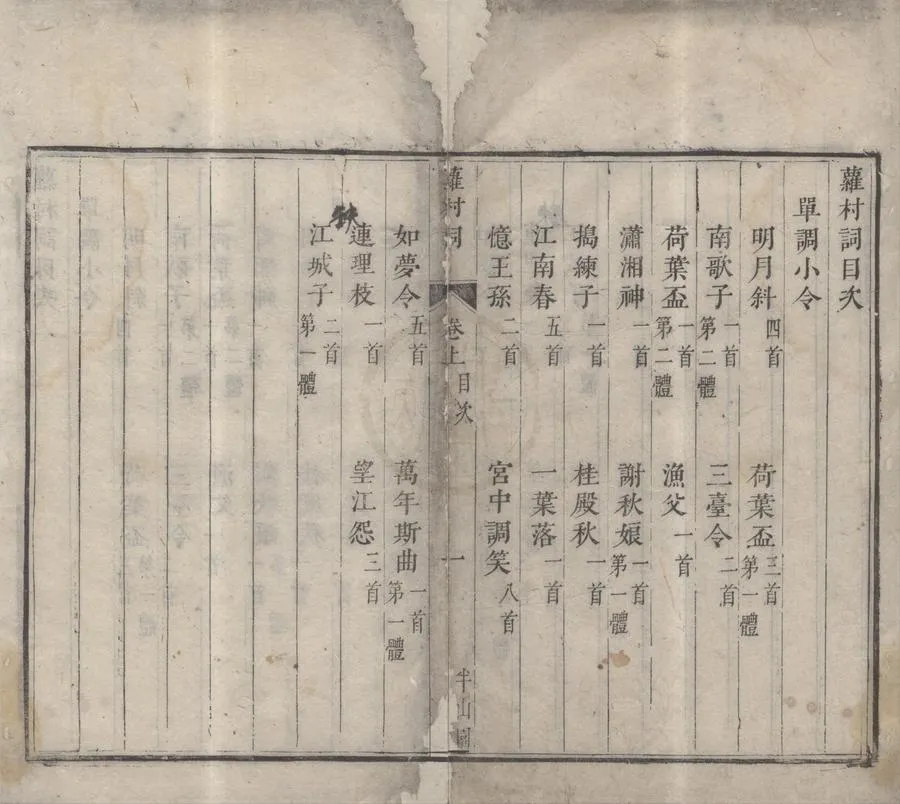 蘿村詞目次
單調小令
明月斜四首 荷葉盃三首第一體
南歌子一首第二體 三臺令二首
荷葉盃一首第二體 漁父一首
瀟湘神一首 謝秋娘一首第一體
搗練子一首 桂殿秋一首
江南春五首 一葉落一首
憶王孫二首 宮中調笑八首
蘿村詞 卷上目次 一 半山園
如夢令五首 萬年斯曲一首第一體
連理枝一首 望江怨三首
江城子二首第一體